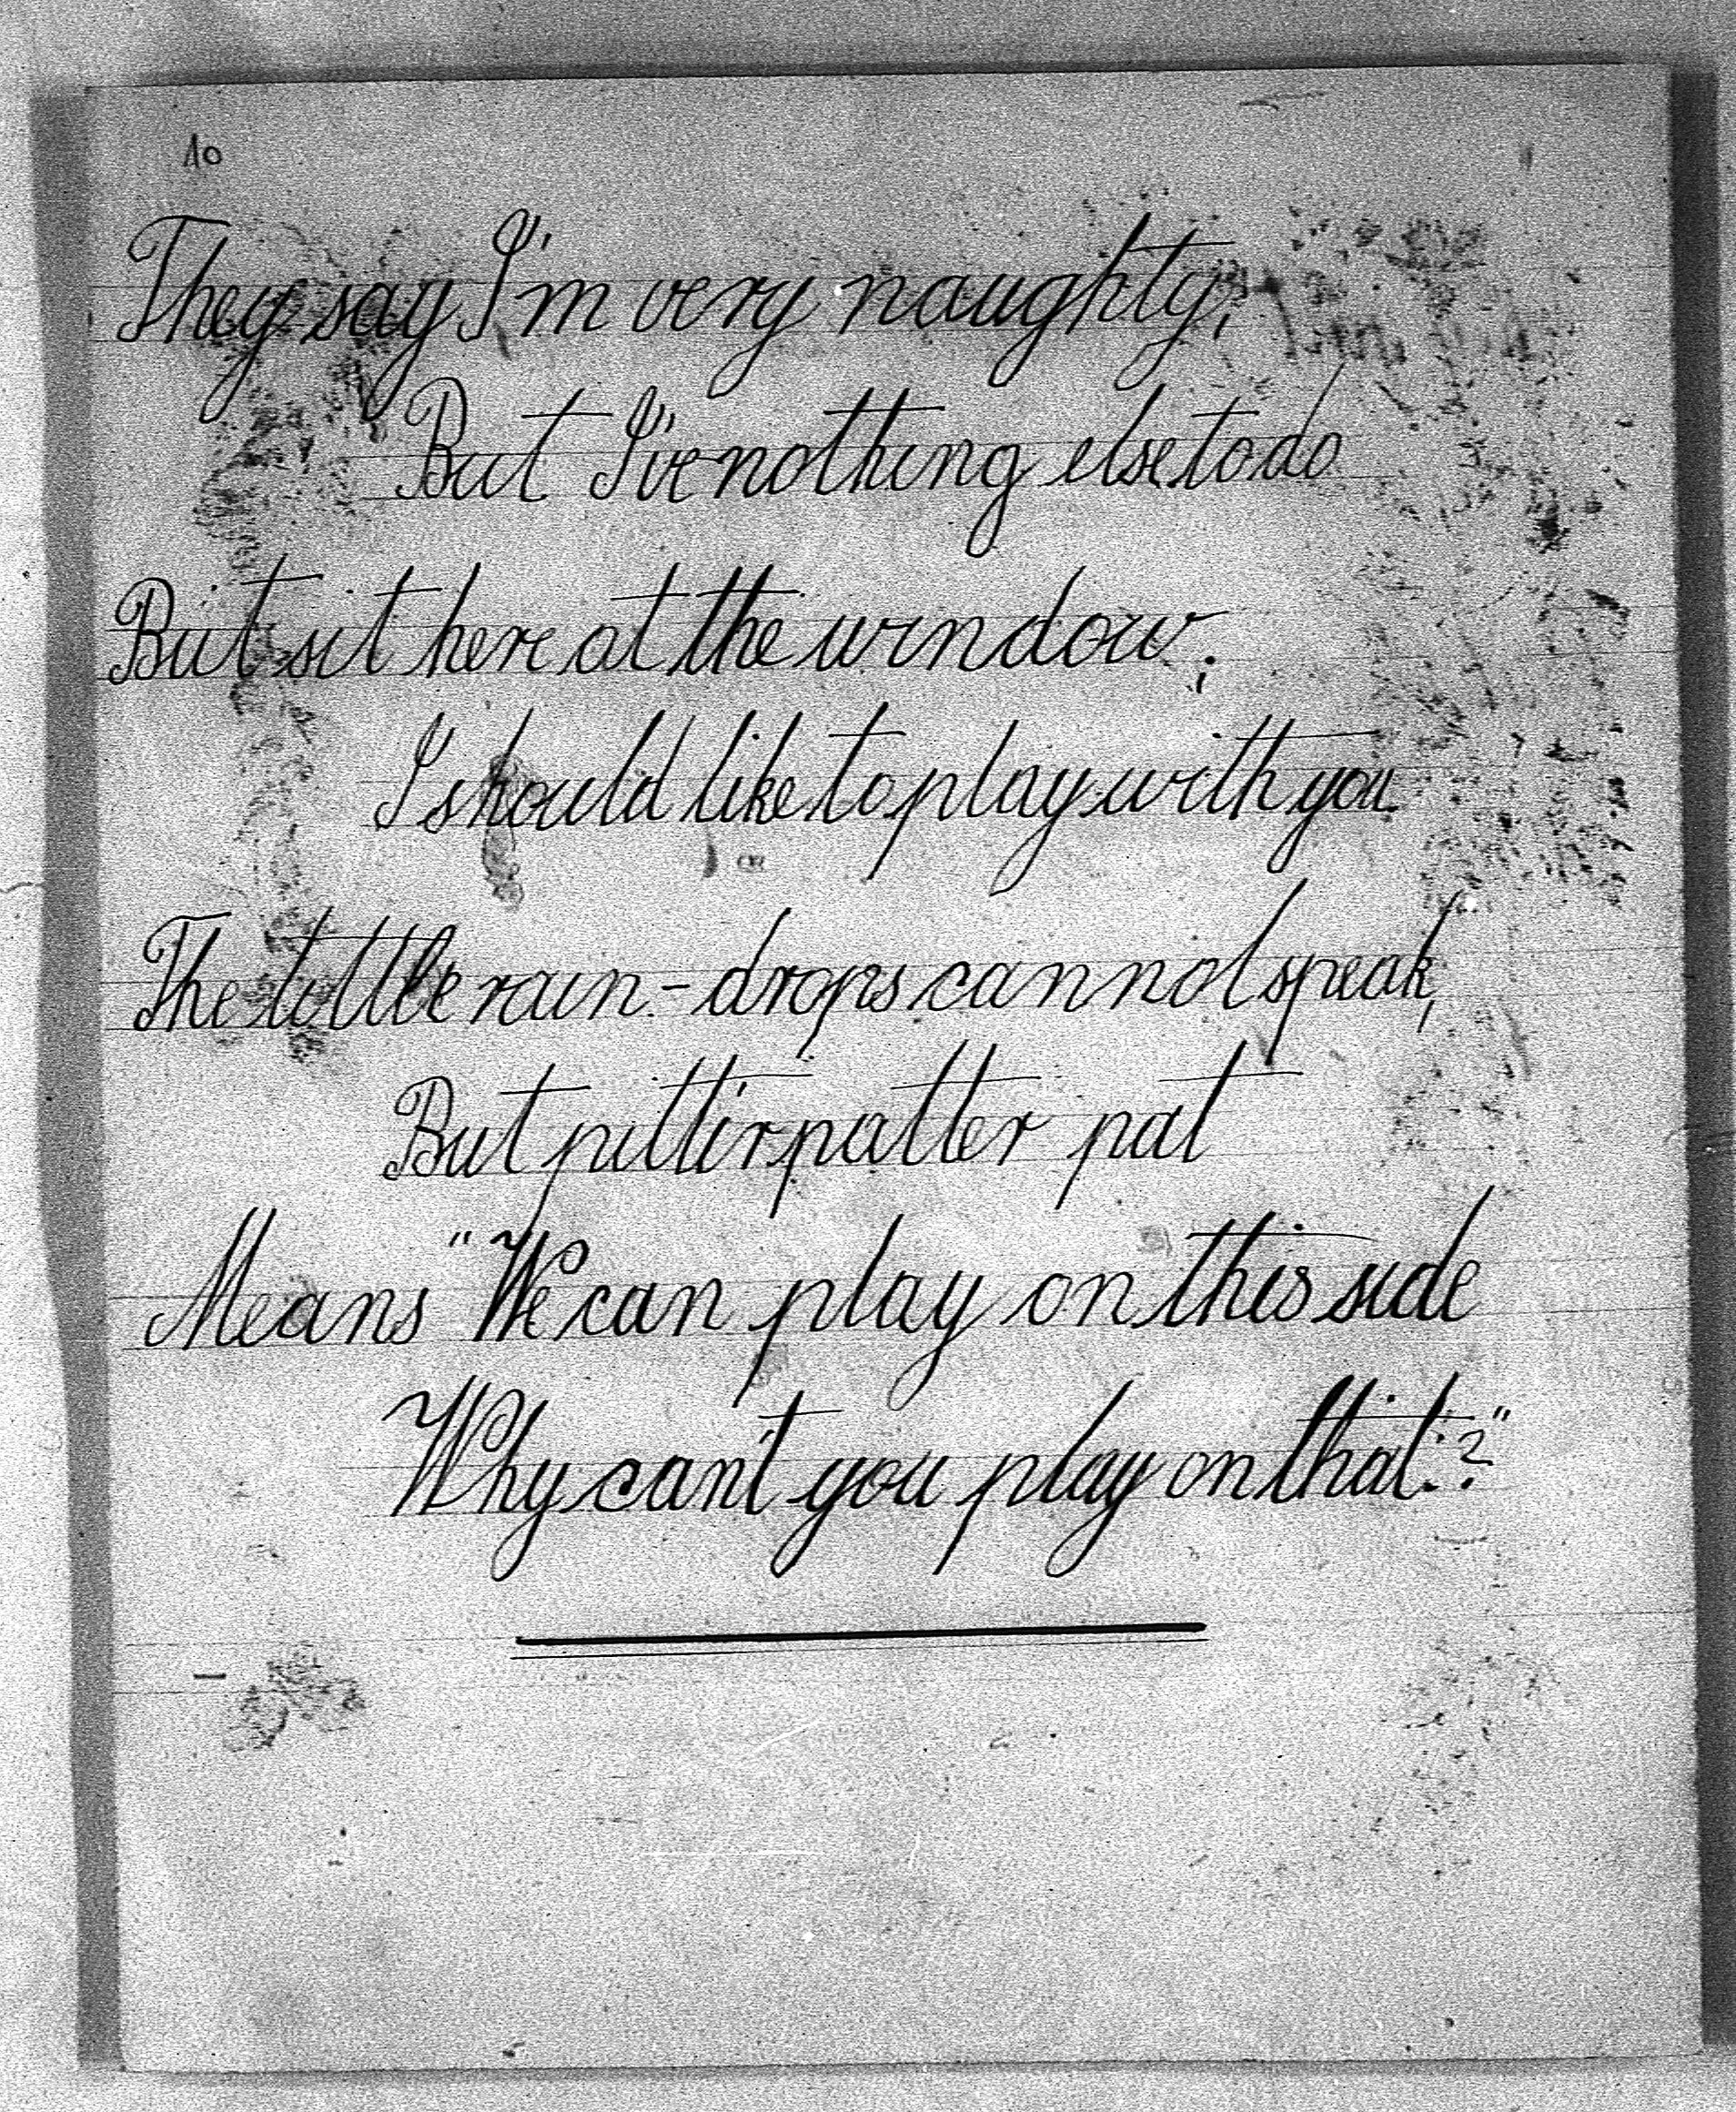 10
They say I'm very naughty,
But I've nothing else to do
But sit here at the window;
I should like to play with you.
The little rain-drops cannot speak,
But pitter patter pat
Means "We can play on this side
Why can't you play on that?"